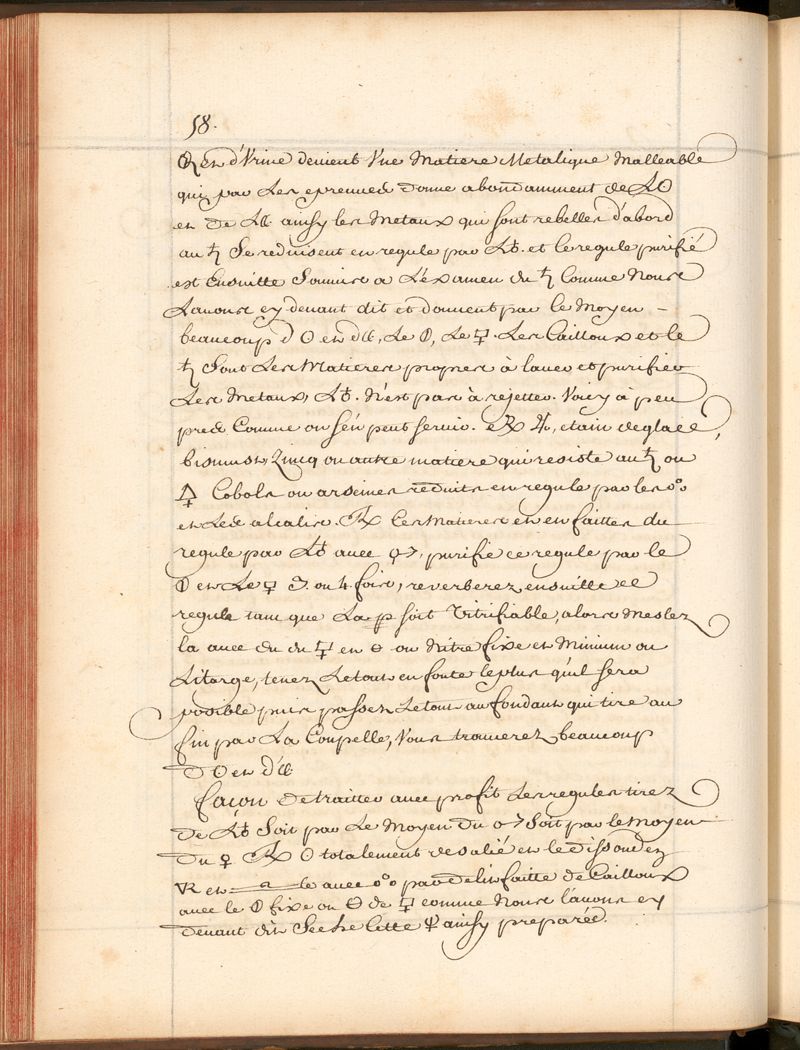 58.
et d'Vrine devient Vne Matiere Metalique Malleable
qui par Les epreuves donne abondamment de L'☉
et de L'☾. ainsy les Metaux qui sont rebelles d'abord
au ♄ Se reduisent en regule par L'♁. et le regule purifié
est Ensuitte Soumis a L'Examen du ♄ Comme Nous
L'avons cy devant dit et donnent par le Moyen –
beaucoup d'☉ et d'☾, Le ⦶, Le 🜿. Les Cailloux et le
♄ Sont Les Matieres propres à laver et purifier
Les Metaux, L'♁. N'est pas à rejetter. Voicy à peu
pres Comme on s'en peut servir. ℞ ♃, etain de glace,
bismuth, Zincq ou autre matiere qui resiste au ♄ ou
🜍 Cobols ou arsenics reduits en regule par les
et Les alcalis. ℞ Ces Matieres et en faittes du
regule par L'♁ avec ♂, purifié ce regule par le
⦶ et Le 🜿 3. ou 4. fois, reverberez ensuitte ce
regule tant que La soit Vitrifiable, alors Meslez
la avec du du 🜿 et ou Nitre fixe et Minium ou
Litarge, tenez Le tout en fonte le plus qu'il sera
possible puis passez Le tout au fondant qui tire au
fin par La Coupelle, Vous trouverez beaucoup
d'☉ et d'☾
façon de traitter avec profit Les regules tirez
de L'♁ Soit par Le Moyen du ♂ Soit par le Moyen
Du ♀ ℞ ☉ totalement desalié et le Dissoudez
et le avec par delit faitte de Cailloux
avec le ⦶ fixe ou de 🜿 comme Nous l'avons cy
devant dit Seche Cette ainsy preparée.